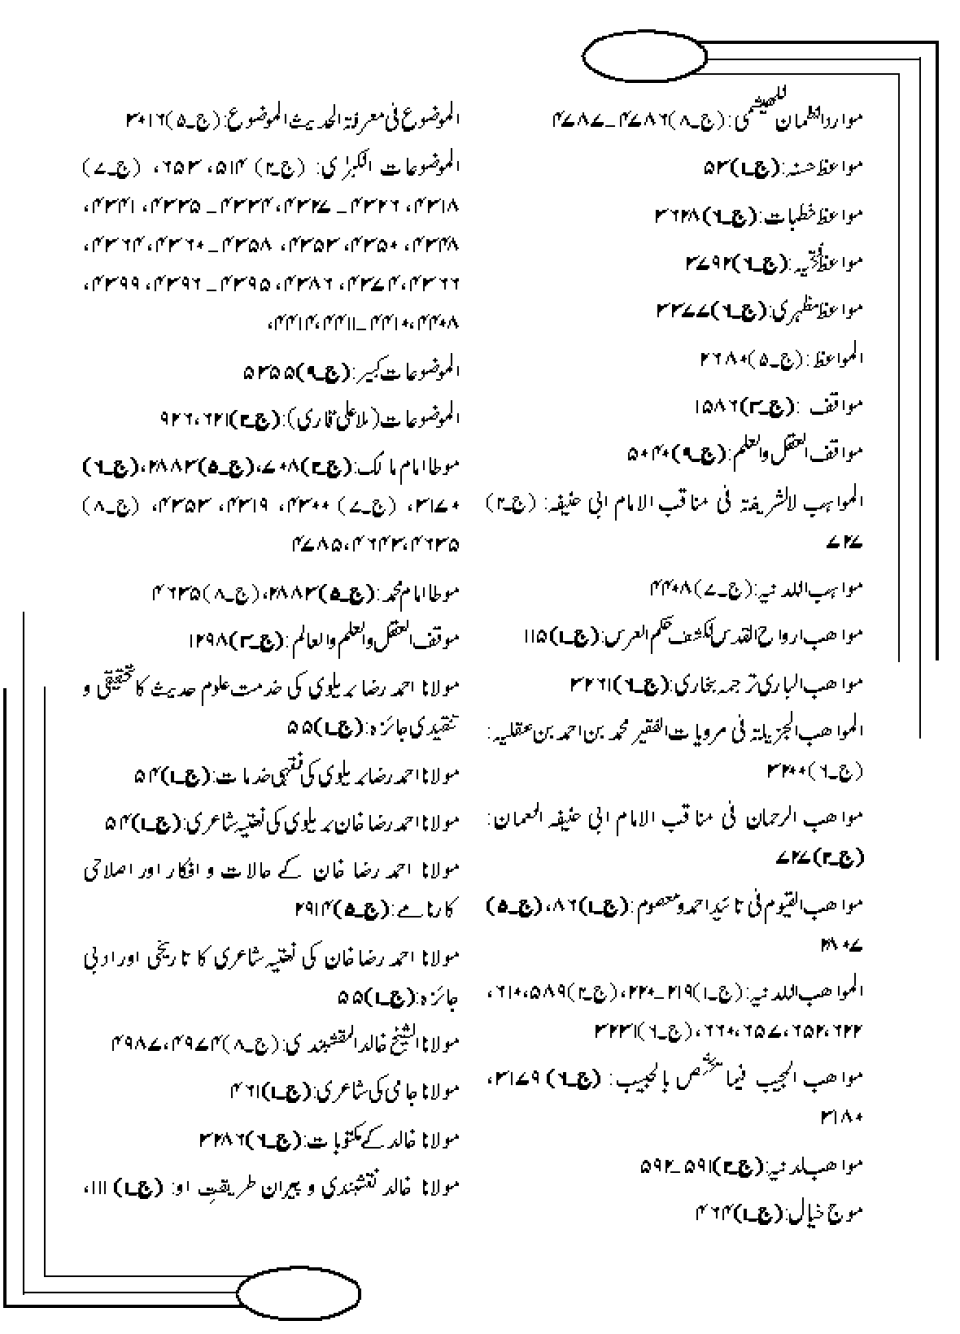 مواردالظمان للھیشمی:(ج۔۸)۴۷۸۶۔۴۷۸۷
مواعظ حسنہ:(ج۔۱)۵۳
مواعظ خطبات:(ج۔۶)۳۶۲۸
مواعظ نعیمیہ:(ج۔۶)۳۷۹۲
مواعظ مظہری:(ج۔۶)۳۳۷۷
المواعظ:(ج۔۵)۲۶۸۰
مواقف :(ج۔۳)۱۵۸۶
مواقف العقل والعلم:(ج۔۹)۵۰۴۰
المواہب الشریفتہ فی مناقب الامام ابی حنیفہ: (ج۔۲)
۷۲۷
مواہب اللدنیہ:(ج۔۷)۴۴۰۸
مواھب ارواح القدس لکشف حکم العرس:(ج۔۱)۱۱۵
مواھب الباری ترجمہ بخاری:(ج۔۶)۳۲۶۱
المواھب الجزیلتہ فی مرویات الفقیر محمد بن احمد بن عقلیہ:
(ج۔۶)۳۲۰۰
مواھب الرحمان فی مناقب الامام ابی حنیفہ النعمان:
(ج۔۲)۷۲۷
مواھب القیوم فی تائید احمد ومعصوم:(ج۔۱)۸۶،(ج۔۵)
۲۸۰۷
المواھب اللدنیہ:(ج۔۱)۲۱۹۔۲۲۰،(ج۔۲)۵۸۹، ۶۱۰،
۶۲۲، ۶۵۲، ۶۵۷، ۶۶۰،(ج۔۶)۳۲۳۱
مواھب الجیب فیما یختص بالحبیب: (ج۔۶)۳۱۷۹،
۳۱۸۰
مواھب لدنیہ:(ج۔۲)۵۹۱۔۵۹۲
موج خیال:(ج۔۱)۴۶۴
الموضوع فی معرفۃ الحدیث الموضوع:(ج۔۵)۳۰۱۶
الموضوعات الکبرٰی: (ج۔۲) ۵۱۴، ۶۵۳، (ج۔۷)
۴۳۱۸، ۴۳۲۶۔ ۴۳۲۷، ۴۳۳۴۔ ۴۳۳۵، ۴۳۴۱،
۴۳۴۸، ۴۳۵۰، ۴۳۵۳، ۴۳۵۸۔۴۳۶۰، ۴۳۶۴،
۴۳۶۶، ۴۳۷۴، ۴۳۸۶، ۴۳۹۵۔ ۴۳۹۶، ۴۳۹۹،
۴۴۰۸، ۴۴۱۰۔۴۴۱۱، ۴۴۱۴،
الموضوعات کبیر:(ج۔۹)۵۳۵۵
الموضوعات(ملاعلی قاری):(ج۔۲)۶۲۱، ۹۲۶
موطا امام مالک:(ج۔۲)۷۰۸،(ج۔۵)۲۸۸۳،(ج۔۶)
۳۱۷۰، (ج۔۷) ۴۳۰۰، ۴۳۱۹، ۴۳۵۳، (ج۔۸)
۴۶۳۵، ۴۶۴۳، ۴۷۸۵
موطا امام محمد:(ج۔۵)۲۸۸۳،(ج۔۸)۴۶۳۵
موقف العقل والعلم والعالم:(ج۔۳)۱۲۹۸
مولانا احمد رضا بریلوی کی خدمت علوم حدیث کا تحقیقی و
تنقیدی جائزہ:(ج۔۱)۵۵
مولانا احمد رضا بریلوی کی فقہی خدمات:(ج۔۱)۵۴
مولانا احمد رضا خان بریلوی کی نعتیہ شاعری:(ج۔۱)۵۴
مولانا احمد رضا خان کے حالات و افکار اور اصلاحی
کارنامے:(ج۔۵)۲۹۱۴
مولانا احمد رضا خان کی نعتیہ شاعری کا تاریخی اور ادبی
جائزہ:(ج۔۱)۵۵
مولانا الشیخ خالد النقشبندی:(ج۔۸)۴۹۷۴، ۴۹۸۷
مولانا جامی کی شاعری:(ج۔۱)۴۶۱
مولانا خالد کے مکتوبات:(ج۔۶)۳۲۸۶
مولانا خالد نقشبندی و پیران طریقتِ او: (ج۔۱) ۱۱۱،